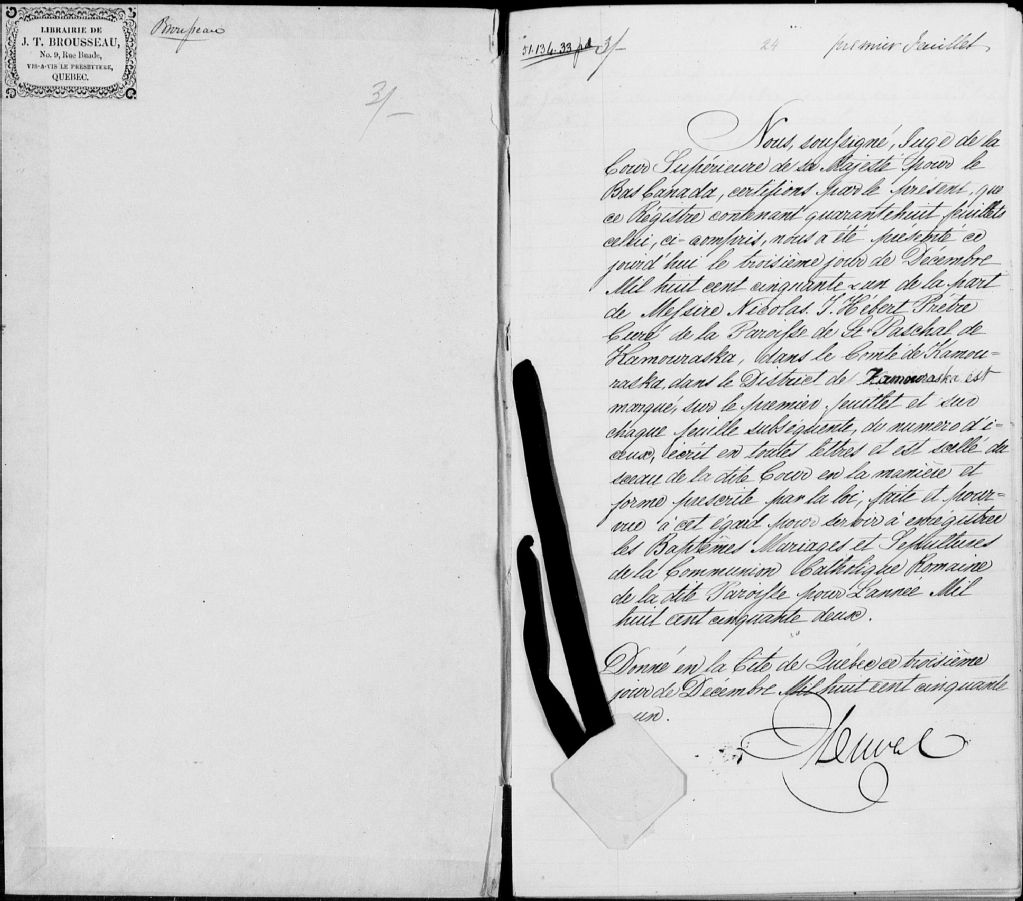 LIBRAIRIE DE
J. T. BROUSSEAU,
No. 9, Rue Buade,
VIS-A-VIS LE PRESBYTERE,
QUEBEC.
Brousseau
3/-
3/-
24
premier feuillet
Nous, soussigné, Juge de la
Cour Supérieure de sa Majesté pour le
Bas Canada, certifions par le present, que
ce Régistre contenant quarante huit feuillets
celui, ci-compris, nous a été presenté ce
jourd'hui le troisième jour de Décembre
Mil huit cent cinquante & un de la part
de Messire Nicolas. T. Hébert Prêtre
Curé de la Paroisse de St. Paschal de
Kamouraska, dans le Comté de Kamou=
raska, dans le District de Kamouraska est
marqué, sur le premier feuillet et sur
chaque feuille subséquente, du numero d'i=
ceux, écrit en toutes lettres et est scellé du
sceau de la dite Cour en la manière et
forme prescrite par la loi, faite et pour=
vue à cet égard pour servir à enrégistrer
les Baptêmes Mariages et Sépultures
de la Communion Catholique Romaine
de la dite Paroisse pour L'année Mil
huit cent cinquante deux.
Donné en la Cité de Québec ce troisième
jour de Décembre Mil huit cent cinquante
un.